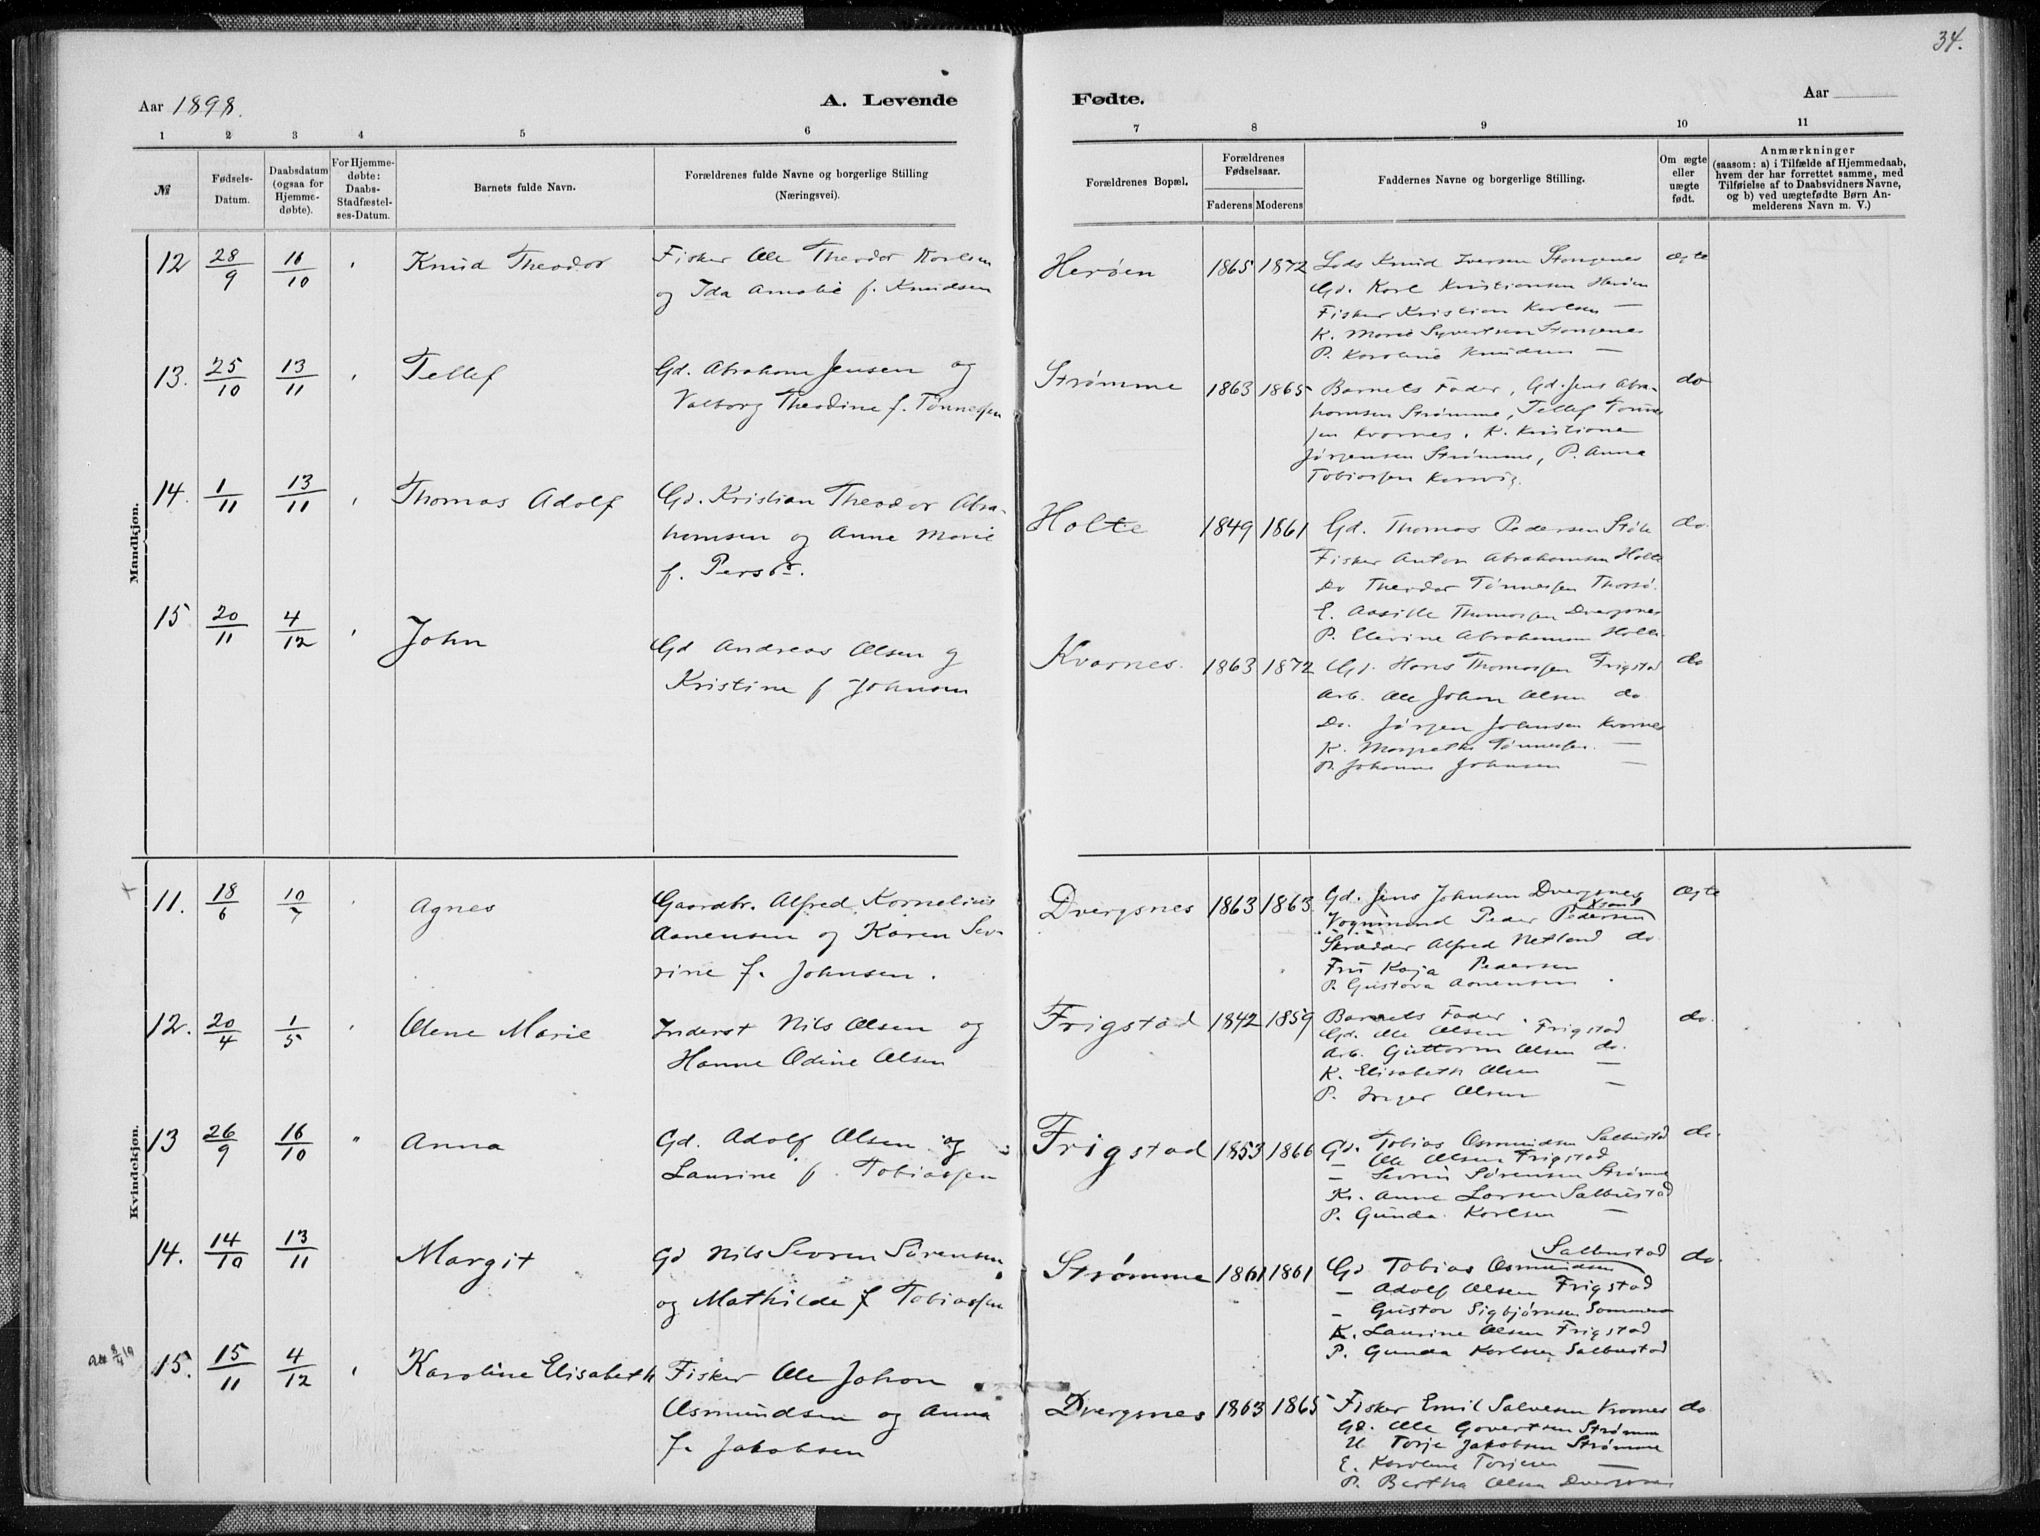 34.
Aar 1898.
A. Levende
Fødte.
Aar
1 2 3 4 5 6
7 8 9 10 11
№
Fødsels-
Datum.
Daabsdatum
(ogsaa for
Hjemme-
døbte).
For Hjemme-
døbte:
Daabs-
Stadfæstel-
ses-Datum.
Barnets fulde Navn.
Forældrenes fulde Navne og borgerlige Stilling
(Næringsvei).
Forældrenes Bopæl.
Forældrenes
Fødselsaar.
Faderens Moderens
Faddernes Navne og borgerlige Stilling.
Om ægte
eller
uægte
født.
Anmærkninger
(saasom: a) i Tilfælde af Hjemmedaab,
hvem der har forrettet samme, med
Tilføielse af to Daabsvidners Navne,
og b) ved uægtefødte Børn An-
melderens Navn m. V.)
Mandkjøn.
12 28/9 16/10 Knud Theodor
Fisker Ole Theodor Karlsen
og Ida Amalie f. Knudsen
Herøen 1865 1872
Lods Knud Iversen Stangenes
Gd. Karl Kristiansen Herøen
Fisker Kristian Karlsen —
K. Marie Syvertsen Stangenes
P. Karoline Knudsen —
Ægte
13. 25/10 13/11 Tellef
Gd. Abraham Jensen og
Valborg Theodine f. Tønnessen
Strømme 1863 1865
Barnets Fader, Gd. Jens Abra-
hamsen Strømme, Tellef Tønnes
sen Kvarnes, K. Kristiane
Jørgensen Strømme, P. Anna
Tobiassen
do
14. 1/11 13/11 Thomas Adolf
Gd. Kristian Theodor Abra-
hamsen og Anne Marie
f. Persdr.
Holte 1849 1861
Gd. Thomas Pedersen Støle
Fisker Anton Abrahamsen Holte
Do Theodor Tønnessen Thorsø.
E. Aasille Thomassen Dvergsnes
P. Elevine Abrahamsen Holte
do.
15 20/11 4/12 John
Gd Andreas Olsen og
Kristine f Johnsen
Kvarnes. 1863 1872
Gd. Hans Thomassen Frigstad
Arb. Ole Johan Olsen do
Do. Jørgen Johnsen Kvarnes
K. Margrethe Tønnessen. —
P. Johanne Johnsen —
do
Kvindekjøn.
+
11. 18/6 10/7 Agnes
Gaardbr. Alfred Kornelius
Aanensen og Karen Sev-
rine f. Johnsen.
Dvergsnes 1863 1863
Gd. Jens Johnsen Dvergsnes
Vognmand Peder Pedersen
Skrædder Alfred Netland do
Fru Kaja Pedersen
P. Gustava Aanensen
Ægte
12. 20/4 1/5 Olene Marie
Inderst Nils Olsen og
Hanne Odine Olsen
Frigstad 1842 1859
Barnets Fader.
Gd. Ole Olsen Frigstad
Arb. Guttorm Olsen do.
K. Elisabeth Olsen —
P. Inger Olsen —
do.
13 26/9 16/10 " Anna
Gd. Adolf Olsen og
Laurine f. Tobiassen
Frigstad 1853 1866
Gd. Tobias Osmundsen Salbustad
— Ole Olsen Frigstad
— Sevrin Sørensen Strømme
K. Anne Larsen Salbustad
P. Gunda Karlsen —
do.
14. 14/10 13/11 Margit
Gd Nils Sevren Sørensen
og Mathilde f Tobiassen
Strømme 1861 1861
Salbustad
Gd Tobias Osmundsen
— Adolf Olsen Frigstad
— Gustav Sigbjørnsen
K. Laurine Olsen Frigstad
P. Gunda Karlsen Salbustad
do.
15. 15/11 4/12 Karoline Elisabeth
Fisker Ole Johan
Osmundsen og Anna
f. Jakobsen
Dvergsnes 1863 1865
Fisker Emil Salvesen Kvarnes
Gd. Ole Govertsen Strømm
U Torje Jakobsen Strømme
E. Karoline Torjesen —
P. Bertha Olsen Dvergsnes
do.